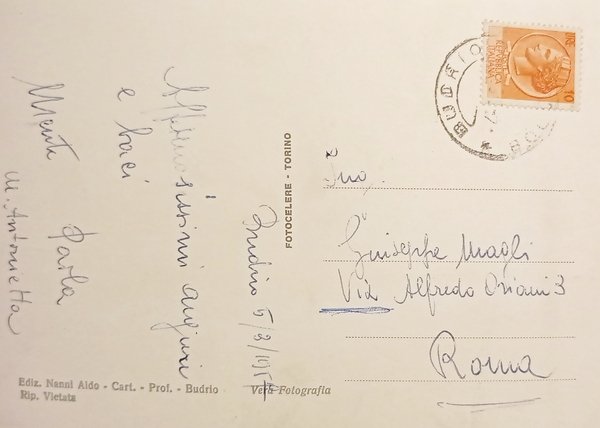 Budrio 5/8/1957
Affmosissimi auguri
e baci
Paola
M. Antonietta
Ediz. Nanni Aldo - Cart. - Prof. - Budrio
Rip. Vietata
Vera Fotografia
FOTOCELERE - TORINO
BUDRIO
REPUBBLICA
ITALIANA
10
Giuseppe Maoli
Via Alfredo Oriani 3
Roma